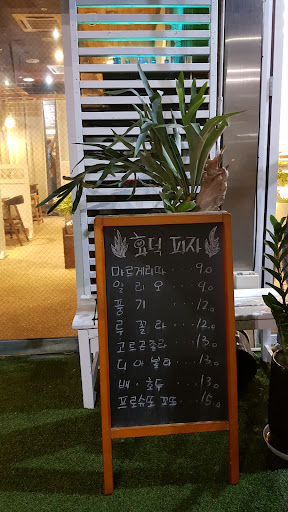 효덕 피자
마르게리따 ··· 9.0
알리오 ··· 9.0
풍기 ··· 12.0
루꼴라 ··· 12.0
고르곤졸라 ··· 13.0
디아볼라 ··· 13.0
배·호두 ··· 13.0
프로슈또 꼬또 ··· 15.0